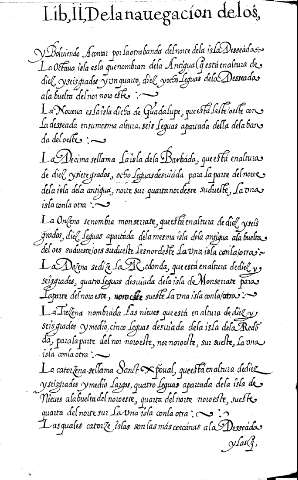 Lib, II, De la nauegacion de los,
y Boluiendo Acontar por la otra banda del norte dela isla Desseada.
La Octaua isla es la que nombran dela Antigua q̃ está en altura de
diez y seis grados y vn quarto, diez y ocho leguas dela Desseada
ala buelta del nornoroeste
La Nouena es la isla dicha de Guadalupe, que está leste oeste con
la desseada en su mesma altura, seis leguas apartada della de la ban
da del oeste
La Decima se llama La isla dela Barbada, que está en altura
de diez y siete grados, ocho leguas desuiada para la parte del norte
dela isla dela antigua, norte sur quarta nordeste sudueste, la vna
isla con la otra
La Onzena se nombra monserrate, que está en altura de diez y seis
grados, diez leguas apartada dela mesma isla dela antigua ala buelta
del oes sudueste
La Dozena se dize La Redonda, que está en altura de diez y
seis grados, quatro leguas desuiada dela isla de Monserrate para
la parte del noroeste, norueste sueste la vna isla con la otra
La Trezena nombrada Las nieues que está en altura de diez y
seis grados y medio, cinco leguas desuiada dela isla dela Redō
da, para la parte del nor noroeste, nor noroeste, sur sueste, la vna
isla con la otra
La catorzena se llama Sanct xp̃oual, que está en altura de diez
y seis grados y medio largos, quatro leguas apartada dela isla de
Nieues ala buelta del noroeste, quarta del norte noroeste, sueste
quarta del norte sur la vna isla con la otra
Las quales catorze islas son las mas cercanas ala Desseada
y las q̃